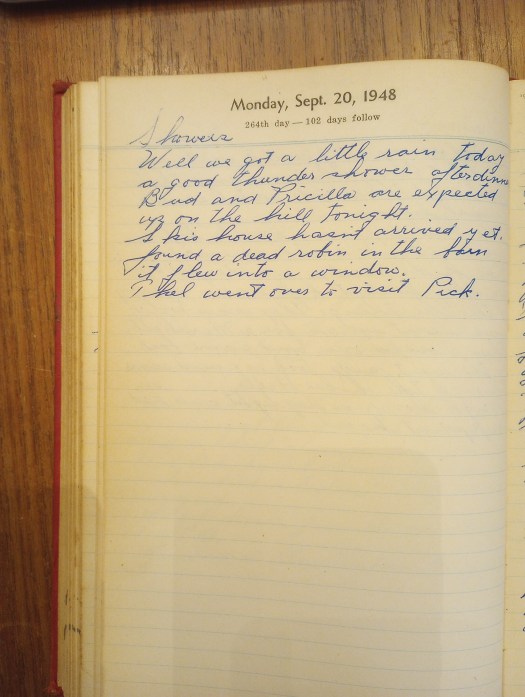 Monday, Sept. 20, 1948
264th day — 102 days follow
Showers
Well we got a little rain today
a good thunder shower after dinner
Bud and Pricilla are expected
up on the hill tonight.
Skis house hasn't arrived yet.
found a dead robin in the barn
it flew into a window.
Thel went over to visit Pick.